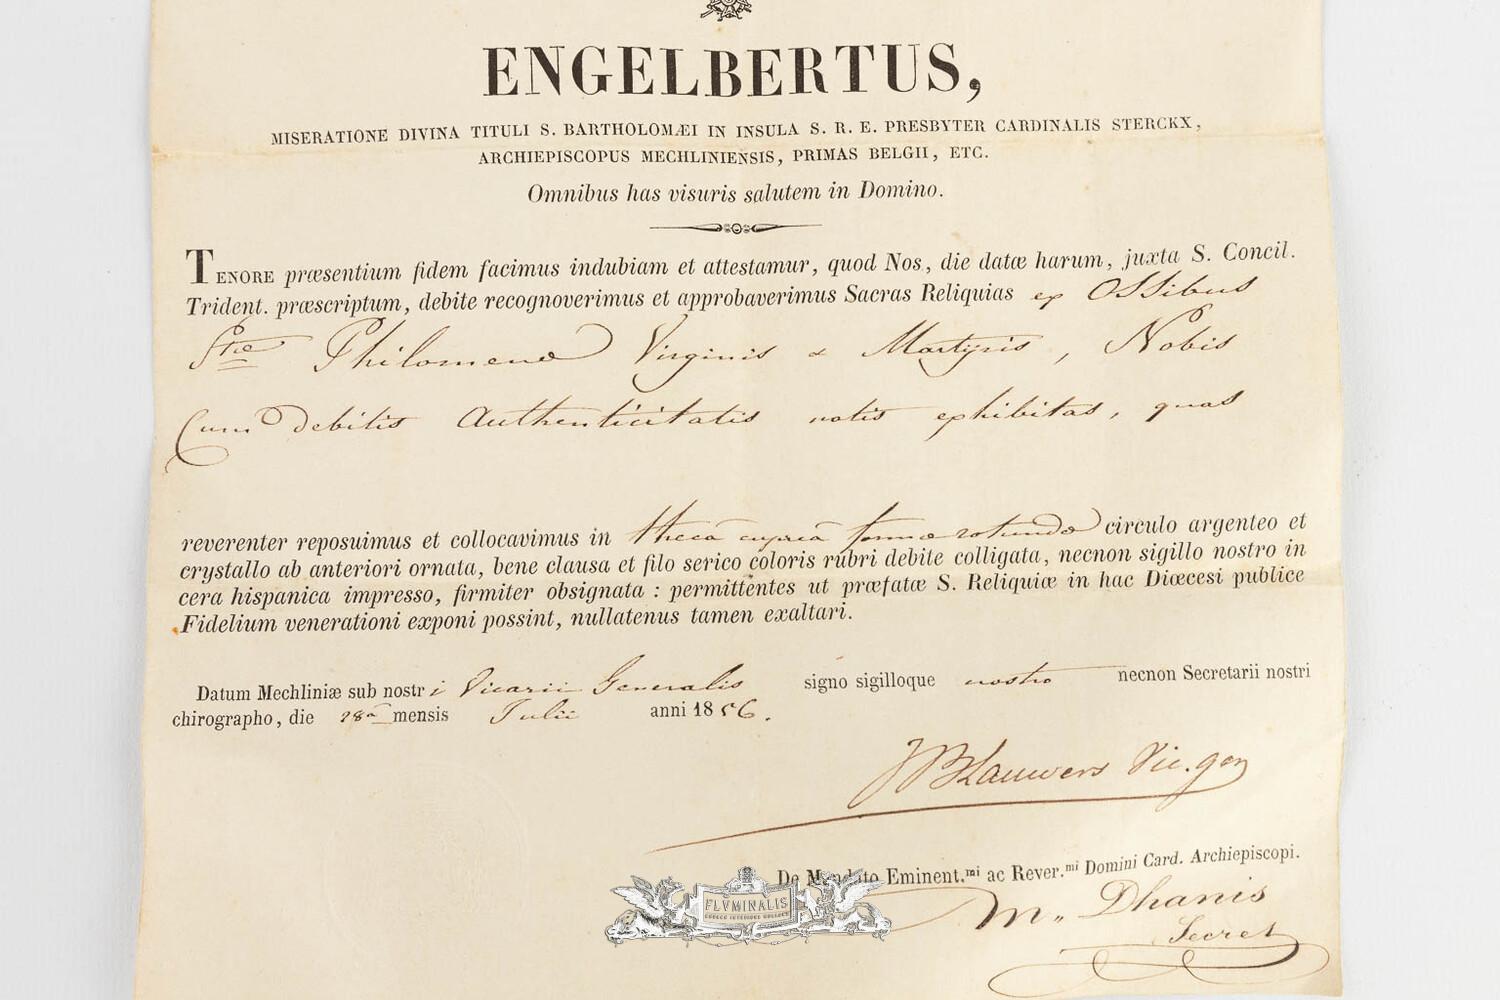 ENGELBERTUS,
MISERATIONE DIVINA TITULI S. BARTHOLOMÆI IN INSULA S. R. E. PRESBYTER CARDINALIS STERCKX,
ARCHIEPISCOPUS MECHLINIENSIS, PRIMAS BELGII, ETC.
Omnibus has visuris salutem in Domino.
TENORE præsentium fidem facimus indubiam et attestamur, quod Nos, die datæ harum, juxta S. Concil.
Trident. præscriptum, debite recognoverimus et approbaverimus Sacras Reliquias ex Ossibus
Stæ Philomenæ Virginis & Martyris, Nobis
Cum debitis authenticitatis notis exhibitas, quas
reverenter reposuimus et collocavimus in thecâ cupreâ formæ rotundæ circulo argenteo et
crystallo ab anteriori ornata, bene clausa et filo serico coloris rubri debite colligata, necnon sigillo nostro in
cera hispanica impresso, firmiter obsignata : permittentes ut præfatæ S. Reliquiæ in hac Diœcesi publice
Fidelium venerationi exponi possint, nullatenus tamen exaltari.
Datum Mechliniæ sub nostri Vicarii Generalis signo sigilloque nostro necnon Secretarii nostri
chirographo, die 28â mensis Julii anni 1856.
JB Lauwers Vic. gen
De Mandato Eminent.mi ac Rever.mi Domini Card. Archiepiscopi.
FLVMINALIS
M,, Dhanis
Secret